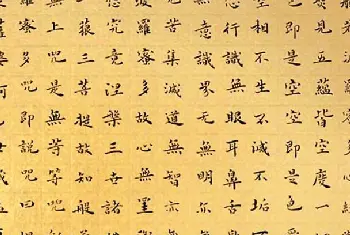 見五蘊皆空度一
即是空空即是色
相不生不滅不垢
行識無眼耳鼻舌
意識界无無明亦
苦集滅道無智亦
羅蜜多故心無罣
究竟涅槃三世諸
藐三菩提故知般
上咒是無等等咒
蜜多咒即說咒曰